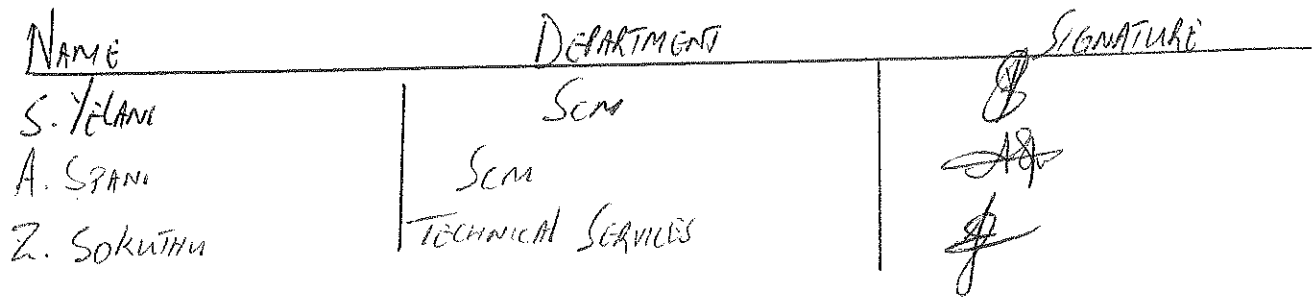 NAME DEPARTMENT SIGNATURE
S. YELANI SCM
A. SPANI SCM
Z. SOKUTHU TECHNICAL SERVICES